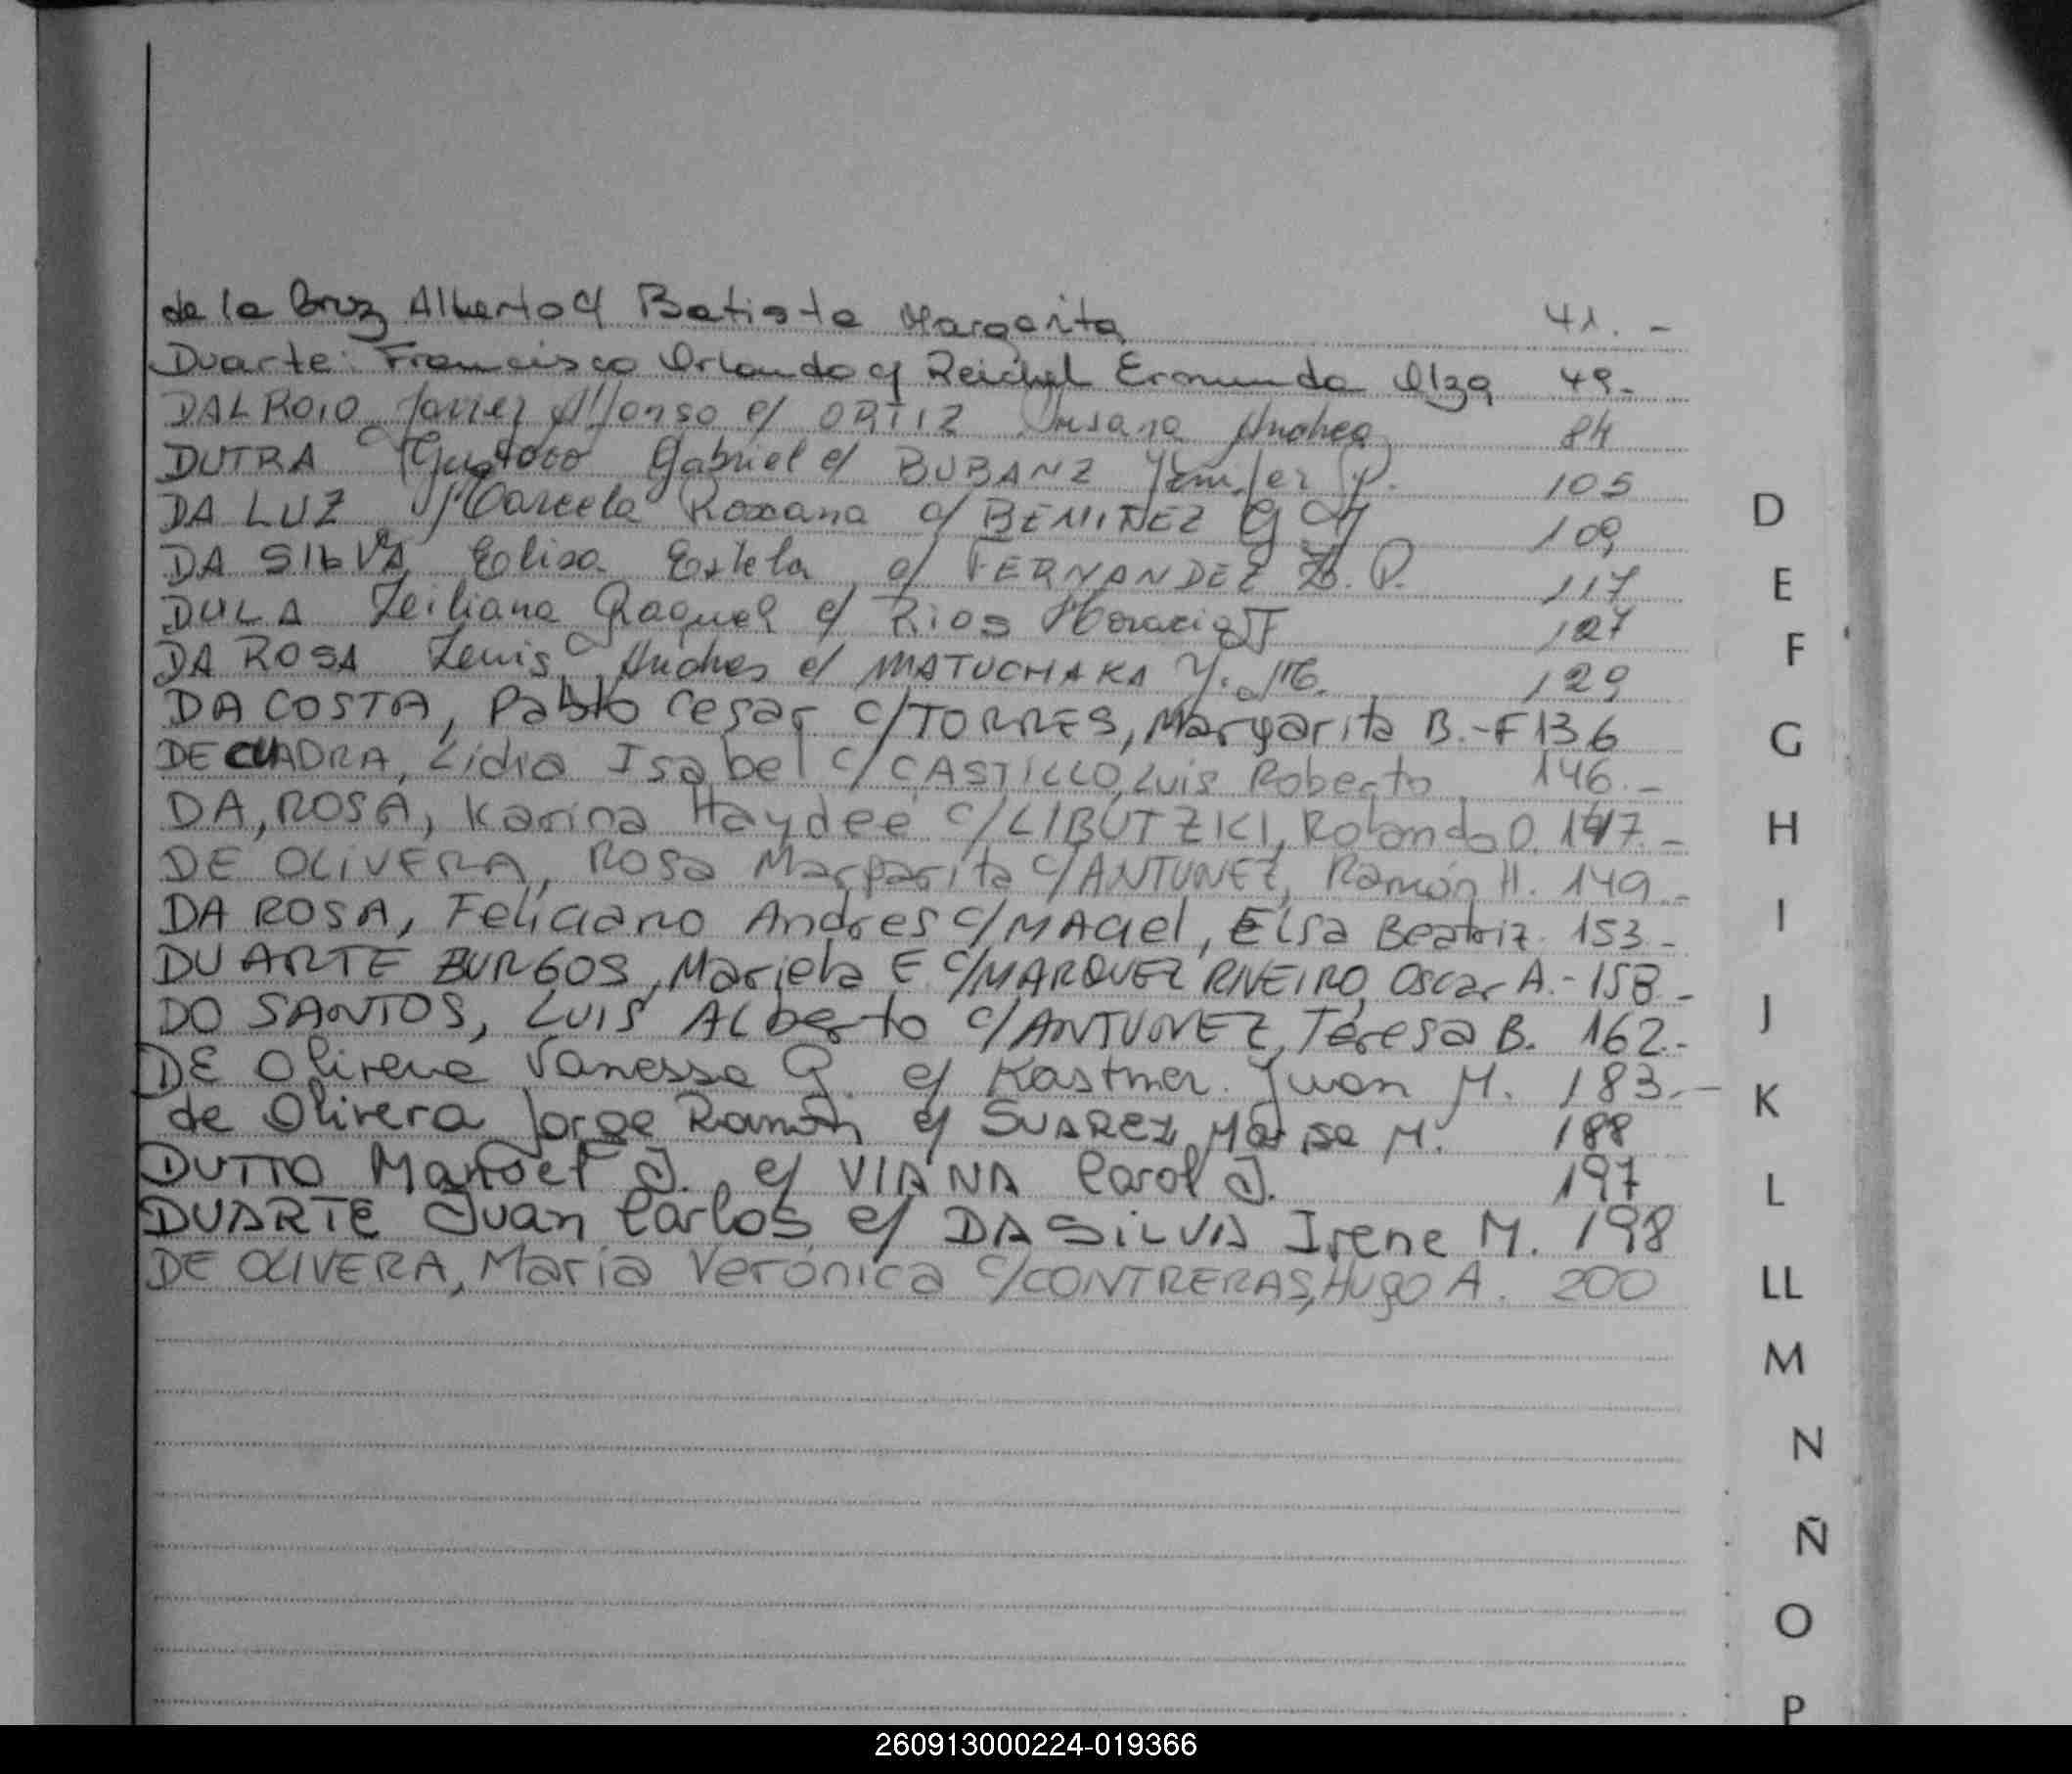 de la Cruz Alberto c/ Batista Margarita 41.-
Duarte: Francisco Orlando c/ Reichel Ermunda Olga 49.-
DALROIO Javier Alfonso c/ ORTIZ Susana Andrea 84
DUTRA Gustavo Gabriel c/ BUBANZ P. 105
DA LUZ Marcela Roxana c/ BENITEZ 109
DA SILVA Elisa Estela c/ FERNANDEZ 117
DULA Leiliana Raquel c/ Rios Horacio F 127
DA ROSA Luis Andres c/ MATUCHAKA Y. M. 129
DA COSTA, Pablo Cesar c/TORRES, Margarita B.-F 136
DE CUADRA, Lidia Isabel c/CASTILLO, Luis Roberto 146.-
DA, ROSA, Karina Haydeé c/LIBUTZKI, Rolando O. 147.-
DE OLIVERA, Rosa Margarita c/ANTUNEZ, Ramón H. 149.-
DA ROSA, Feliciano Andres c/MAciel, Elsa Beatriz 153.-
DUARTE BURGOS, Mariela E. c/MARQUEZ RIVEIRO, Oscar A.- 158.-
DO SANTOS, LUIS ALberto c/ANTUNEZ, Teresa B. 162.-
DE Olivera Vanessa G. c/ Kastner Juan M. 183.-
de Olivera Jorge Ramón c/ SUAREZ Marisa M. 188
DUTTO Manoel J. c/ VIANA Carol J. 197
DUARTE Juan Carlos c/ DA SILVA Irene M. 198
DE OLIVERA, María Verónica c/CONTRERAS, Hugo A. 200
D
E
F
G
H
I
J
K
L
LL
M
N
Ñ
O
P
260913000224-019366